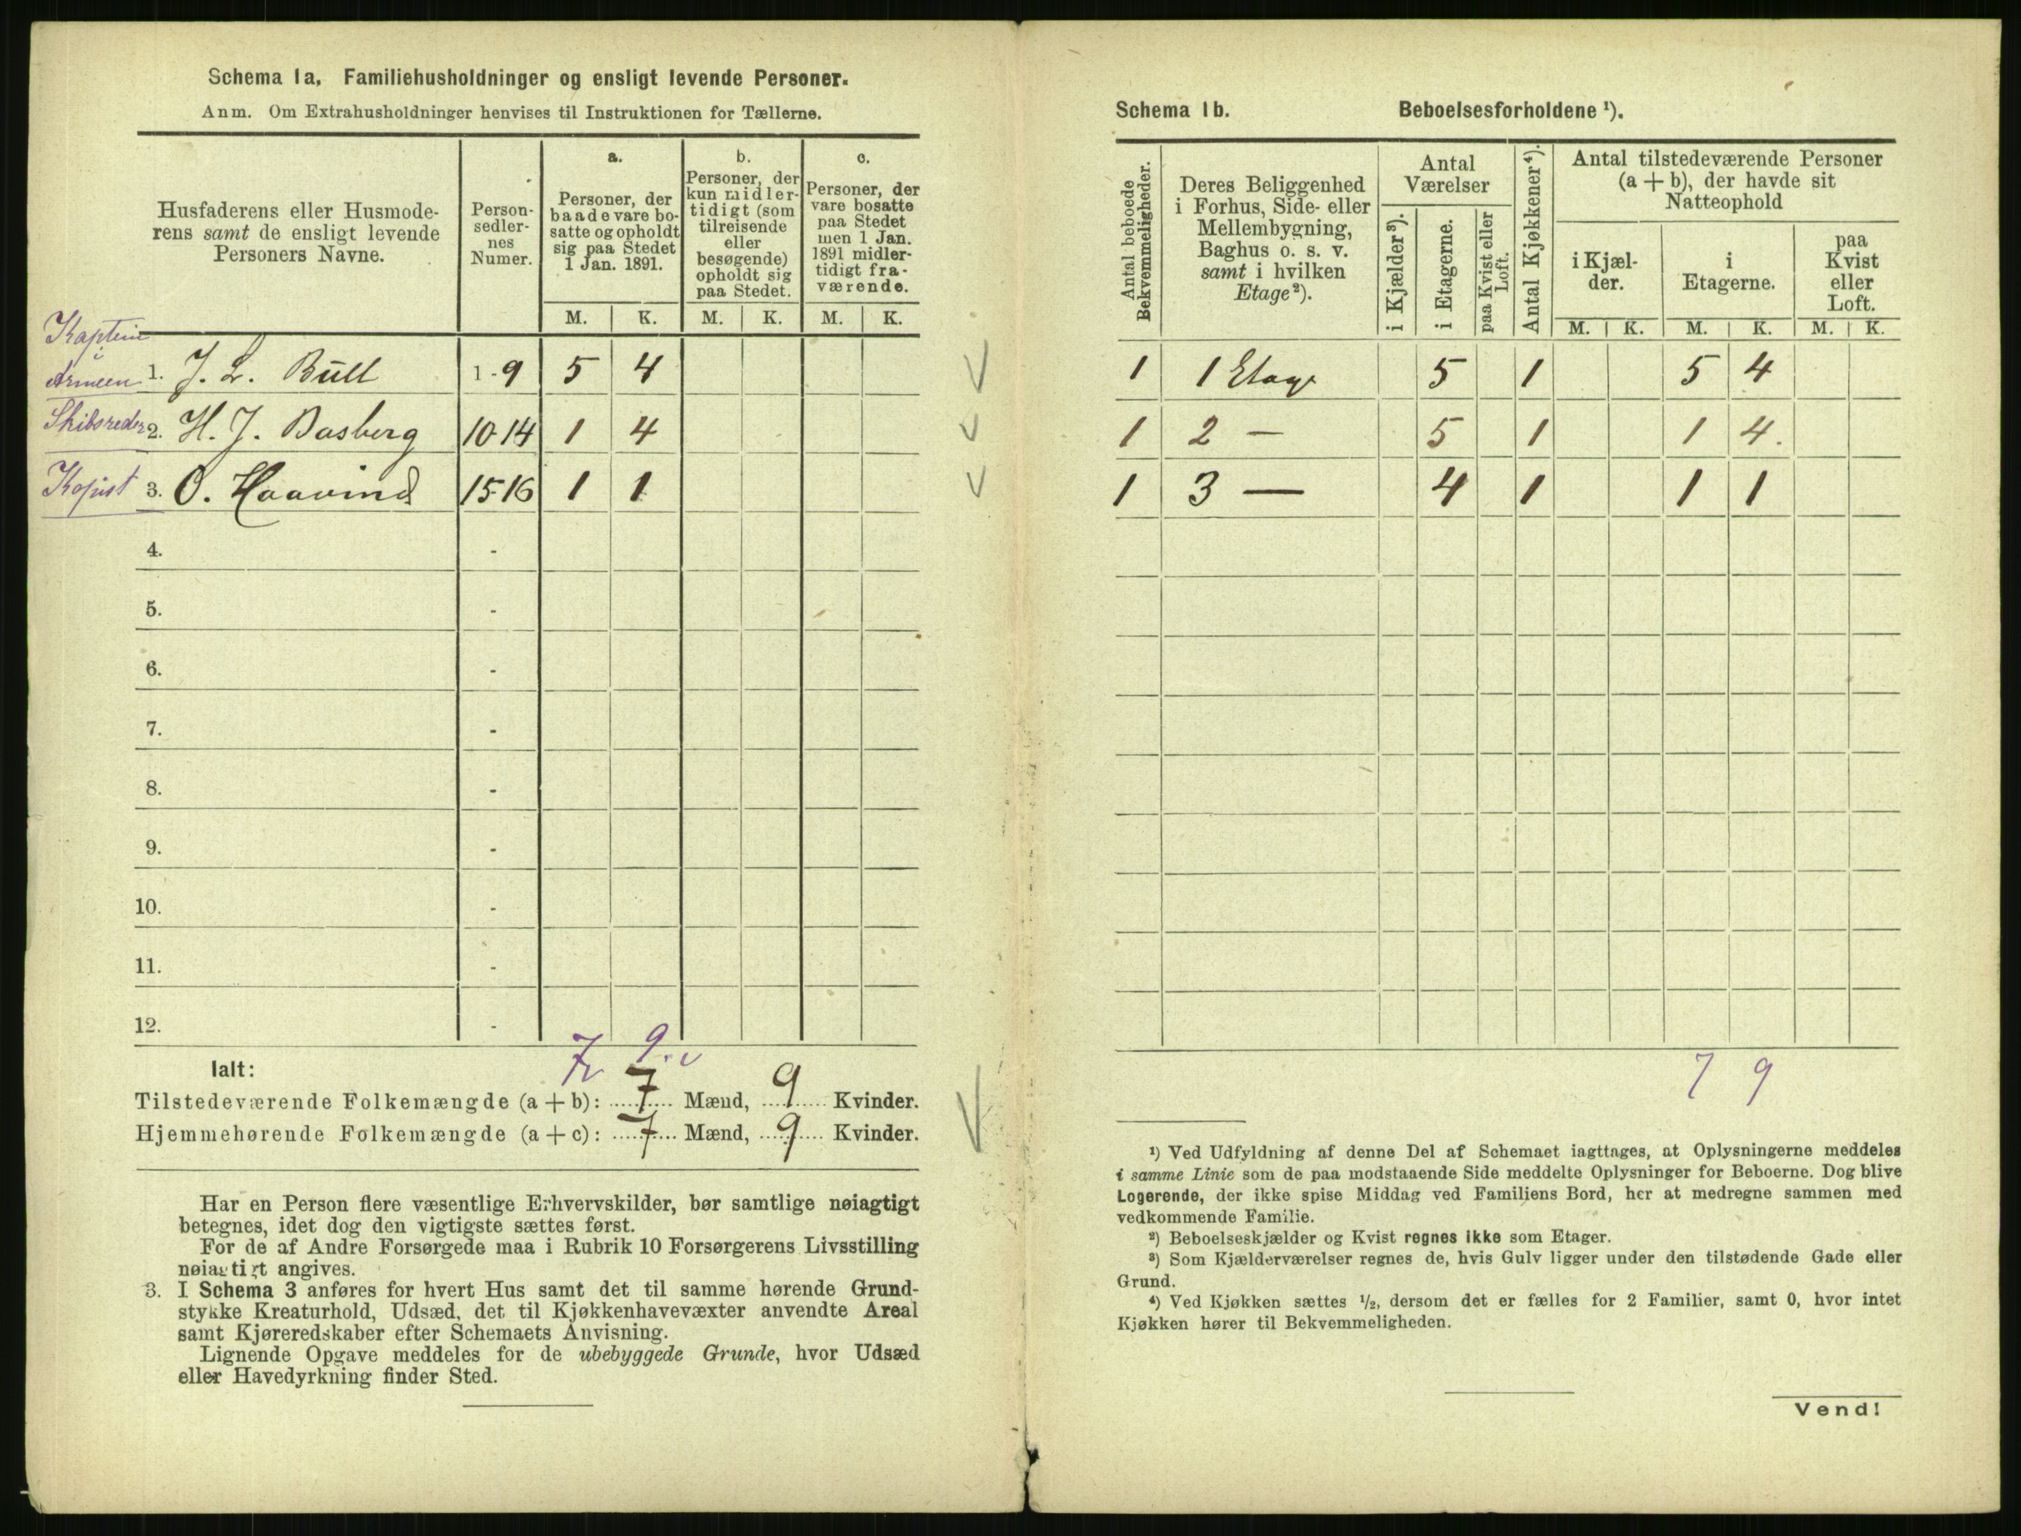 Schema 1a. Familiehusholdninger og ensligt levende Personer.
Anm. Om Extrahusholdninger henvises til Instruktionen for Tællerne.
Husfaderens eller Husmode-
rens samt de ensligt levende
Personers Navne.
Person-
sedler-
nes
Numer.
a.
Personer, der
baade vare bo-
satte og opholdt
sig paa Stedet
1 Jan. 1891.
b.
Personer, der
kun midler-
tidigt (som
tilreisende
eller
besøgende)
opholdt sig
paa Stedet.
c.
Personer, der
vare bosatte
paa Stedet
men 1 Jan.
1891 midler-
tidigt fra-
værende.
M. K. M. K. M. K.
Kaptein
i
Armeen 1. J. L. Büll 1-9 5 4
Skibsreder 2. H. J. Basberg 10-14 1 4
Kopist 3. O. Haavind 15-16 1 1
4. -
5. -
6. -
7. -
8. -
9. -
10. -
11. -
12. -
7 9
Ialt:
Tilstedeværende Folkemængde (a + b): 7 Mænd, 9 Kvinder.
Hjemmehørende Folkemængde (a + c): 7 Mænd, 9 Kvinder.
Har en Person flere væsentlige Erhvervskilder, bør samtlige nøiagtigt
betegnes, idet dog den vigtigste sættes først.
For de af Andre Forsørgede maa i Rubrik 10 Forsørgerens Livsstilling
nøiagtigt angives.
3. I Schema 3 anføres for hvert Hus samt det til samme hørende Grund-
stykke Kreaturhold, Udsæd, det til Kjøkkenhavevæxter anvendte Areal
samt Kjøreredskaber efter Schemaets Anvisning.
Lignende Opgave meddeles for de ubebyggede Grunde, hvor Udsæd
eller Havedyrkning finder Sted.
Schema 1b. Beboelsesforholdene ¹).
Antal beboede
Bekvemmeligheder.
Deres Beliggenhed
i Forhus, Side- eller
Mellembygning,
Baghus o. s. v.
samt i hvilken
Etage²).
Antal
Værelser
i Kjælder³).
i Etagerne.
paa Kvist eller
Loft.
Antal Kjøkkener⁴).
Antal tilstedeværende Personer
(a + b), der havde sit
Natteophold
i Kjæl-
der.
i
Etagerne.
paa
Kvist
eller
Loft.
M. K. M. K. M. K.
1 1 Etage 5 1 5 4
1 2 — 5 1 1 4.
1 3 — 4 1 1 1
7 9
¹) Ved Udfyldning af denne Del af Schemaet iagttages, at Oplysningerne meddeles
i samme Linie som de paa modstaaende Side meddelte Oplysninger for Beboerne. Dog blive
Logerende, der ikke spise Middag ved Familiens Bord, her at medregne sammen med
vedkommende Familie.
²) Beboelseskjælder og Kvist regnes ikke som Etager.
³) Som Kjælderværelser regnes de, hvis Gulv ligger under den tilstødende Gade eller
Grund.
⁴) Ved Kjøkken sættes ½, dersom det er fælles for 2 Familier, samt 0, hvor intet
Kjøkken hører til Bekvemmeligheden.
Vend!